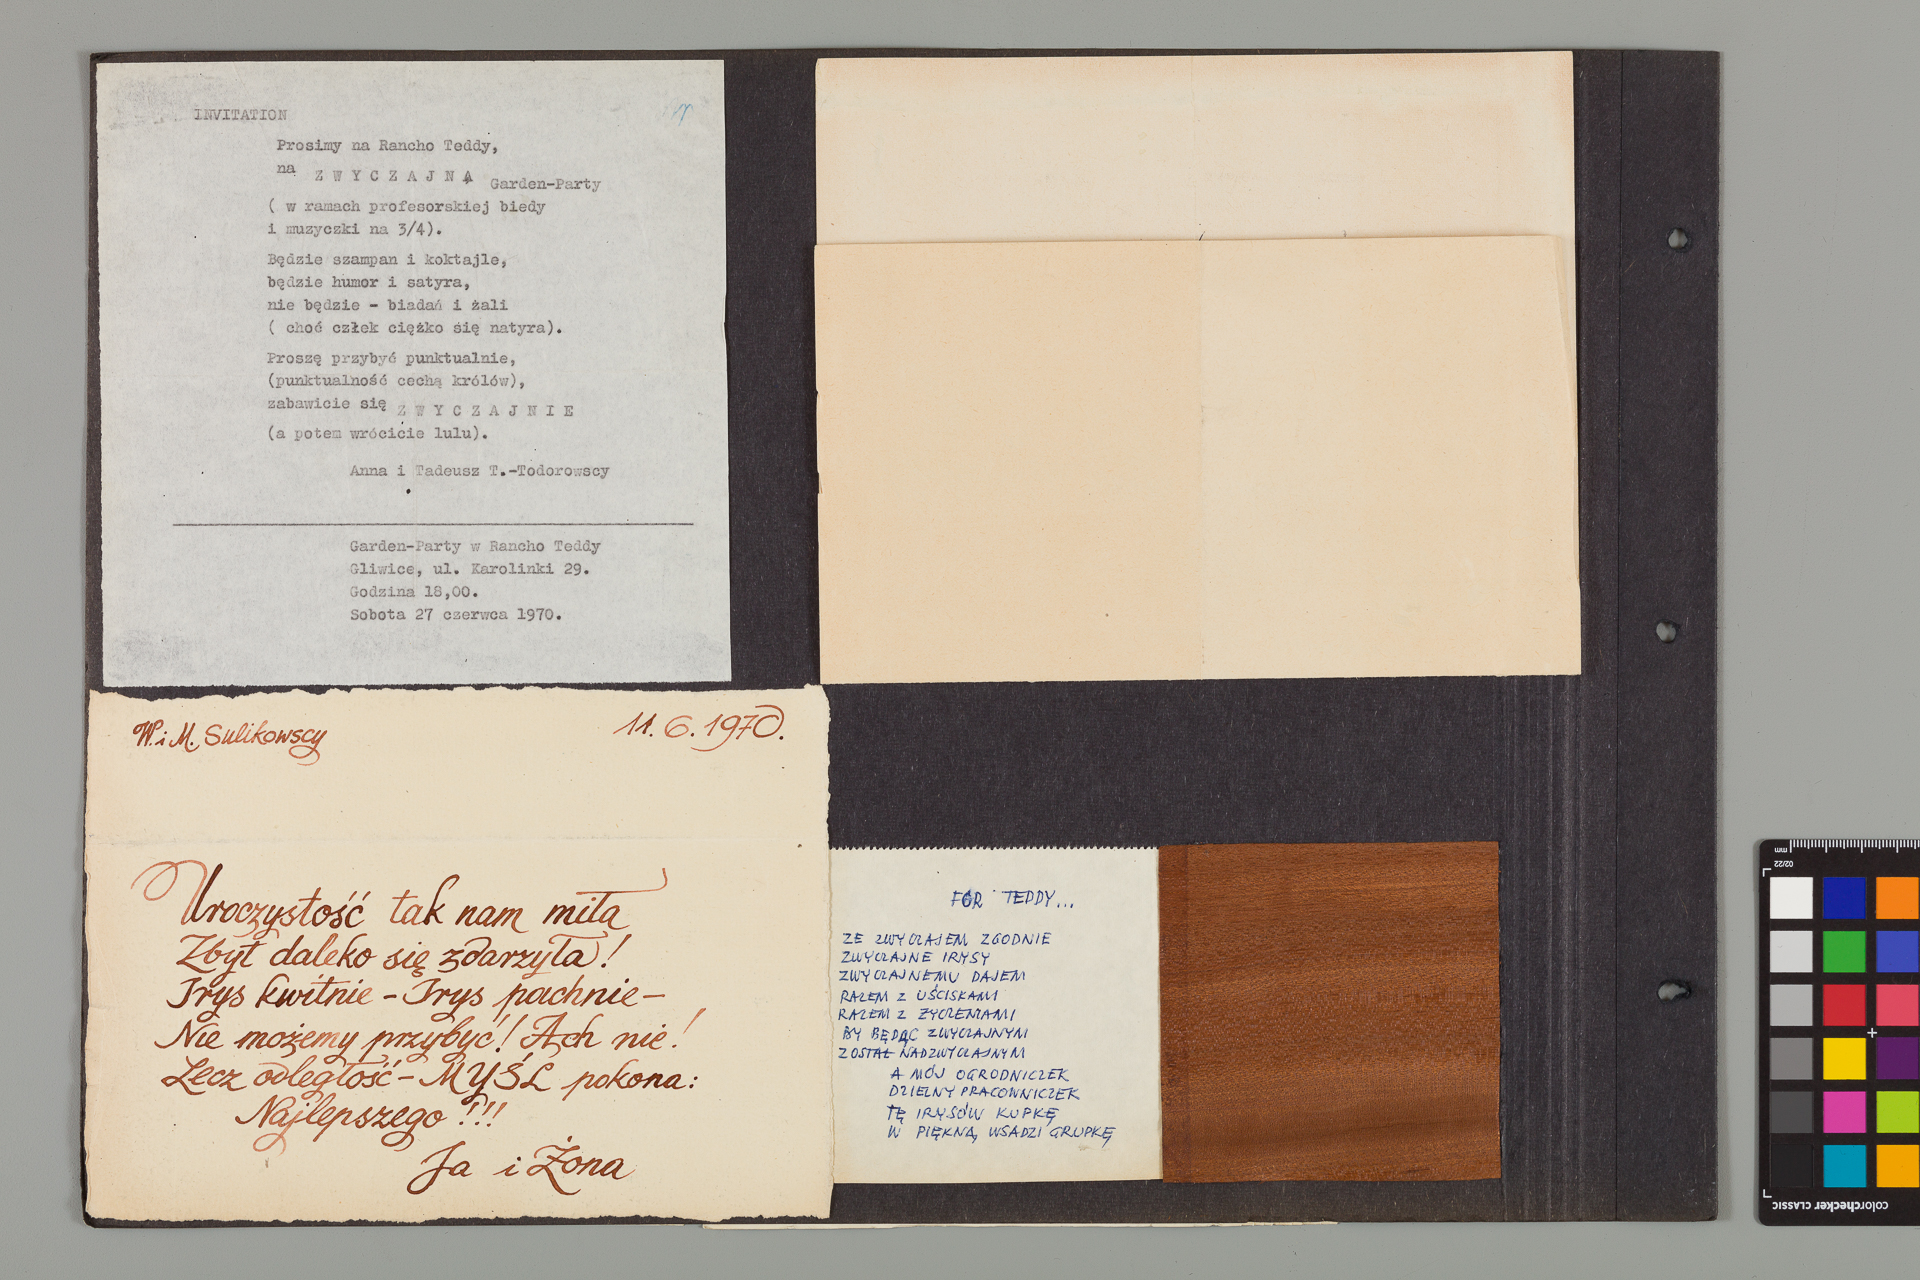 INVITATION
Prosimy na Rancho Teddy,
na Z W Y C Z A J N Ą Garden-Party
( w ramach profesorskiej biedy
i muzyczki na 3/4).
Będzie szampan i koktajle,
będzie humor i satyra,
nie będzie - biadań i żali
( choć człek ciężko się natyra).
Proszę przybyć punktualnie,
(punktualność cechą królów),
zabawicie się Z W Y C Z A J N I E
(a potem wrócicie lulu).
Anna i Tadeusz T.-Todorowscy
Garden-Party w Rancho Teddy
Gliwice, ul. Karolinki 29.
Godzina 18,00.
Sobota 27 czerwca 1970.
W. i M. Sulikowscy 11. 6. 1970.
Uroczystość tak nam miła
Zbyt daleko się zdarzyła!
Irys kwitnie - Irys pachnie -
Nie możemy przybyć! Ach nie!
Lecz odległość - MYŚL pokona:
Najlepszego!!!
Ja i Żona
FOR TEDDY...
ZE ZWYCZAJEM ZGODNIE
ZWYCZAJNE IRYSY
ZWYCZAJNEMU DAJEM
RAZEM Z UŚCISKAMI
RAZEM Z ŻYCZENIAMI
BY BĘDĄC ZWYCZAJNYM
ZOSTAŁ NADZWYCZAJNYM
A MÓJ OGRODNICZEK
DZIELNY PRACOWNICZEK
TĘ IRYSÓW KUPKĘ
W PIĘKNĄ WSADZI GRUPKĘ
mm
02/22
colorchecker CLASSIC